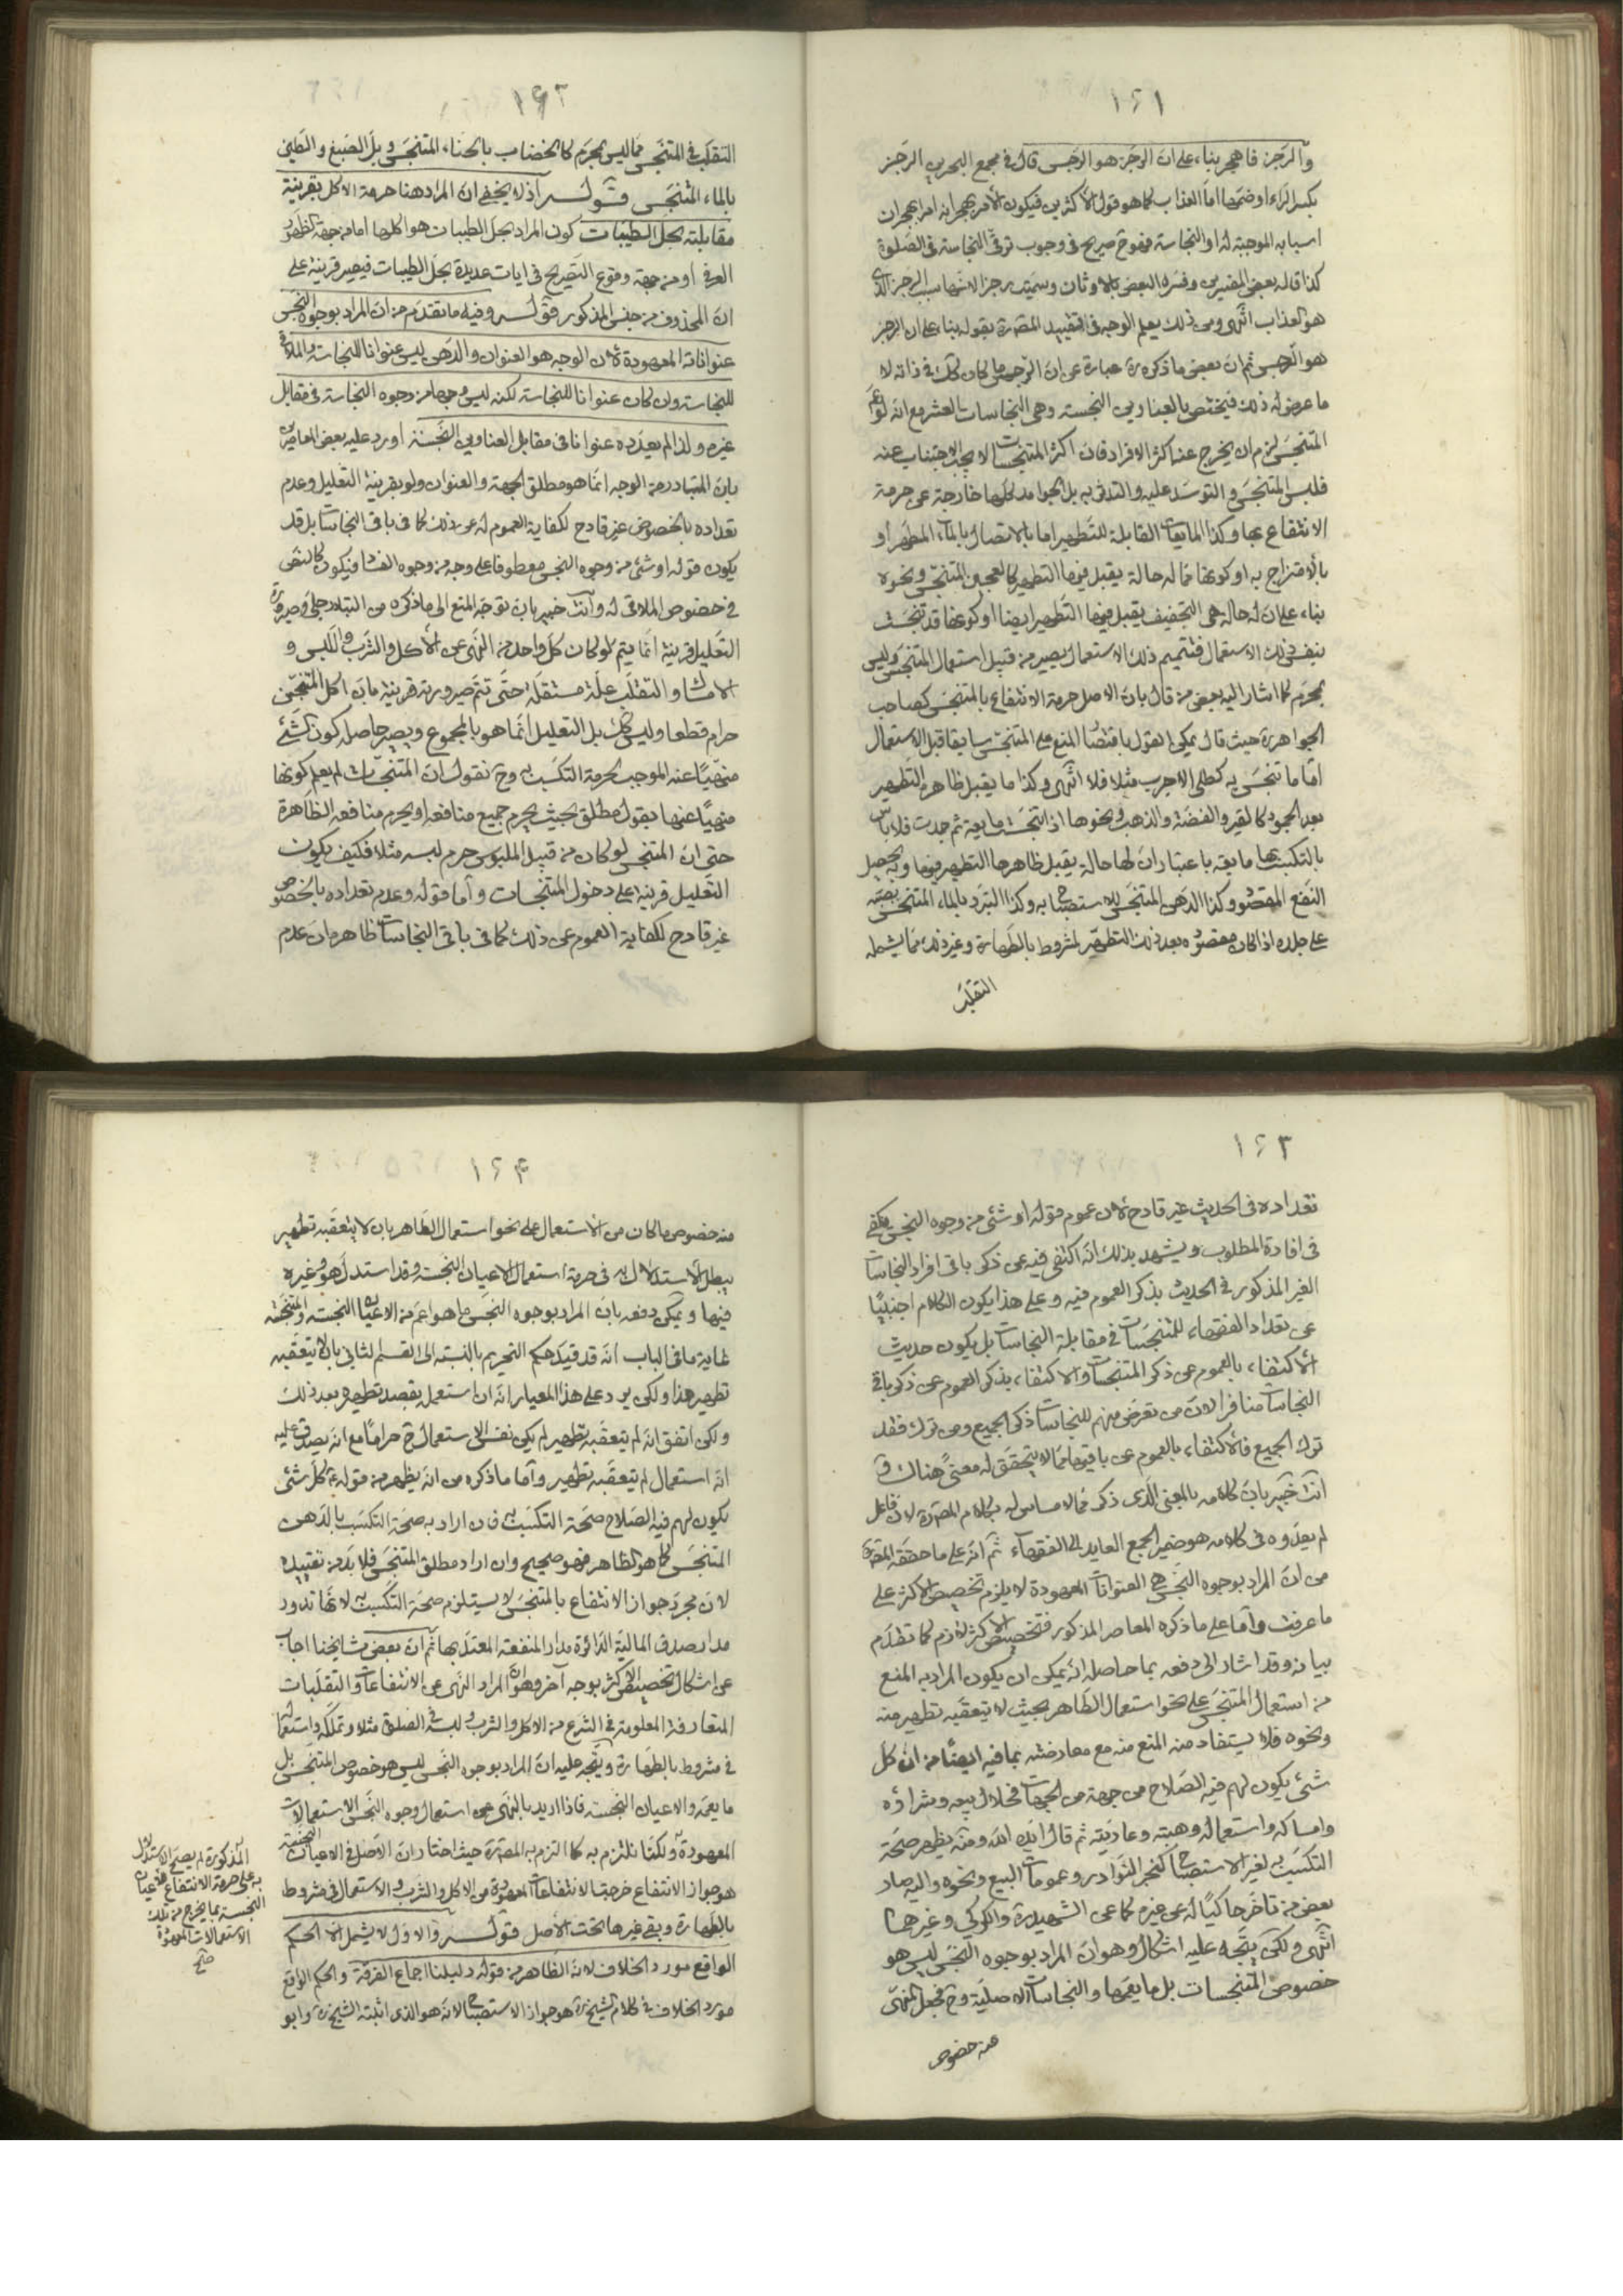 ١٦١
والرجز فاهجر بناء على ان الرجز هو الرجس قال في مجمع البحرين الرجز
بكسر الراء او ضمها اما العذاب كما هو قول الاكثرين فيكون الامر بهجرانه امرا بهجران
اسبابه الموجبة له او النجاسة فهو ح صريح في وجوب توقى النجاسة في الصلوة
كذا قاله بعض المفسرين وفسره البعض بالاوثان وسميت رجزا لانها سبب الرجز الذى
هو العذاب انتهى ومن ذلك يعلم الوجه في تقييد المصره بقوله بناء على ان الرجز
هو الرجس ثم ان بعض ما ذكره ره عبارة عن ان الرجس ما كان كك في ذاته لا
ما عرض له ذلك فيختص بالعناوين النجسة وهى النجاسات العشر مع انه لو عم
المتنجس لزم ان يخرج عنه اكثر الافراد فان اكثر المتنجسات لا يجب الاجتناب عنه
فلبس المتنجس والتوسد عليه والتدفى به بل الجوامد كلها خارجة عن حرمة
الانتفاع بها وكذا المايعات القابلة للتطهير اما بالاتصال بالماء المطهر او
بالامتزاج به او كونها مما له حالة يقبل فيها التطهير كالعجين المتنجس ونحوه
بناء على ان له حالة هى التجفيف يقبل فيها التطهير ايضا او كونها قد تنجست
بنفس ذلك الاستعمال فتتميم ذلك الاستعمال يصير من قبيل استعمال المتنجس وليس
بمحرم كما اشار اليه بعض من قال بان الاصل حرمة الانتفاع بالمتنجس كصاحب
الجواهر ره حيث قال يمكن القول باقتضاء المنع على المتنجس سابقا قبل الاستعمال
اما ما تنجس به كطلى الاجرب مثلا فلا انتهى وكذا ما يقبل ظاهره التطهير
بعد الجمود كالقير والفضة والذهب ونحوها اذا تنجست مايعة ثم جمدت فلا باس
بالتكسب بها مايعة باعتبار ان لها حالة يقبل ظاهرها التطهير فيها وبه يحصل
النفع المقصود وكذا الدهن المتنجس للاستصباح به وكذا التبرد بالماء المتنجس بصبه
على جلده اذا كان مقصوده بعد ذلك التطهير لمشروط بالطهارة وغير ذلك مما يشمله
التقلب
١٦٢
التقلب في المتنجس مما ليس بمحرم كالخضاب بالحناء المتنجس وبل الصبغ والطين
بالماء المتنجس قوله اذ لا يخفى ان المراد هنا حرمة الاكل بقرينة
مقابلته بحل الطيبات كون المراد بحل الطيبات هو اكلها اما من جهة الظهور
العرفى او من جهة وقوع التصريح في ايات عديدة بحل الطيبات فيصير قرينة على
ان المحذوف من جنس المذكور قوله وفيه ما تقدم من ان المراد بوجوه النجس
عنواناته المعهودة لان الوجه هو العنوان والدهن ليس عنوانا للنجاسة والملاقى
للنجاسة وان كان عنوانا للنجاسة لكنه ليس وجها من وجوه النجاسة في مقابل
غيره ولذا لم يعدوه عنوانا في مقابل العناوين النجسة اورد عليه بعض المعاصرين
بان المتبادر من الوجه انما هو مطلق الجهة والعنوان ولو بقرينة التعليل وعدم
تعداده بالخصوص غير قادح لكفاية العموم له عن ذلك كما في باقى النجاسات بل قد
يكون قوله او شئ من وجوه النجس معطوفا على وجه من وجوه الفساد فيكون كالنص
في خصوص الملاقى له وانت خبير بان توجه المنع الى ما ذكره من التبادر جلى وصيرورة
التعليل قرينة انما يتم لو كان كل واحد من النهى عن الاكل والشرب واللبس و
الامساك والتقلب علة مستقلة حتى تتم صيرورته قرينة فان اكل المتنجس
حرام قطعا وليس كك بل التعليل انما هو بالمجموع ويصير حاصله كون الشئ
منهيا عنه الموجب لحرمة التكسب به وح نقول ان المتنجسات لم يعلم كونها
منهيا عنها بقول مطلق بحيث يحرم جميع منافعه او يحرم منافعه الظاهرة
حتى ان المتنجس لو كان من قبيل الملبوس حرم لبسه مثلا فكيف يكون
التعليل قرينة على دخول المتنجسات واما قوله وعدم تعداده بالخصوص
غير قادح لكفاية العموم عن ذلك كما في باقى النجاسات ظاهره ان عدم
١٦٣
تعداده في الحديث غير قادح لان عموم قوله او شئ من وجوه النجس يكفى
في افادة المطلوب ويشهد بذلك انه اكتفى فيه عن ذكر باقى افراد النجاسات
الغير المذكور في الحديث بذكر العموم فيه وعلى هذا يكون الكلام اجنبيا
عن تعداد الفقهاء للمتنجسات في مقابلة النجاسات بل يكون حديث
الاكتفاء بالعموم عن ذكر المتنجسات والاكتفاء بذكر العموم عن ذكر باقى
النجاسات منافرا لان من تعرض منهم للنجاسات ذكر الجميع ومن ترك فقد
ترك الجميع فالاكتفاء بالعموم عن باقيها مما لا يتحقق له معنى هناك و
انت خبير بان كلامه بالمعنى الذى ذكر مما لا مساس له بكلام المصره لان فاعل
لم يعدوه في كلامه هو ضمير الجمع العايد الى الفقهاء ثم انه على ما حققه المصره
من ان المراد بوجوه النجس هى العنوانات المعهودة لا يلزم تخصيص الاكثر على
ما عرفت واما على ما ذكره المعاصر المذكور فتخصيص الاكثر لازم كما تقدم
بيانه وقد اشار الى دفعه بما حاصله انه يمكن ان يكون المراد به المنع
من استعمال المتنجس على نحو استعمال الطاهر بحيث لا يتعقبه تطهير منه
ونحوه فلا يستفاد منه المنع منه مع معارضته بما فيه ايضا من ان كل
شئ يكون لهم فيه الصلاح من جهة من الجهات فحلال بيعه وشراؤه
وامساكه واستعماله وهبته وعاريته ثم قال ايده الله ومنه يظهر صحة
التكسب به لغير الاستصباح كخبر النوادر وعمومات البيع ونحوه واليه صار
بعض من تاخر حاكيا له عن غيره كما عن الشهيد ره والكركى وغيرهما
انتهى ولكن يتجه عليه اشكال وهو ان المراد بوجوه النجس ليس هو
خصوص المتنجسات بل ما يعمها والنجاسات الاصلية وح فجعل المنهى
عنه خصوص
١٦۴
منه خصوص ما كان من الاستعمال على نحو استعمال الطاهر بان لا يتعقبه تطهير
يبطل الاستدلال به في حرمة استعمال الاعيان النجسة وقد استدل هو وغيره
فيها ويمكن دفعه بان المراد بوجوه النجس ما هو اعم من الاعيان النجسة والمتنجسة
غاية ما في الباب انه قد قيد حكم التحريم بالنسبة الى القسم الثانى بان لا يتعقبه
تطهير هذا ولكن يرد على هذا المعيار انه ان استعمل بقصد تطهيره بعد ذلك
ولكن اتفق انه لم يتعقبه تطهير لم يكن نفس الاستعمال ح حراما مع انه يصدق عليه
انه استعمال لم يتعقبه تطهير واما ما ذكره من انه يظهر من قوله ع كل شئ
يكون لهم فيه الصلاح صحة التكسب به فان اراد به صحة التكسب بالدهن
المتنجس كما هو الظاهر فهو صحيح وان اراد مطلق المتنجس فلا بد من تقييده
لان مجرد جواز الانتفاع بالمتنجس لا يستلزم صحة التكسب به لانها تدور
مدار صدق المالية الدائرة مدار المنفعة المعتد بها ثم ان بعض مشايخنا اجاب
عن اشكال تخصيص الاكثر بوجه آخر وهو ان المراد النهى عن الانتفاعات والتقلبات
المتعارفة المعلومة في الشرع من الاكل والشرب ولبسه في الصلوة مثلا وتملكه واستعماله
في مشروط بالطهارة ويتجه عليه ان المراد بوجوه النجس ليس هو خصوص المتنجس بل
ما يعمه والاعيان النجسة فاذا اريد بالنهى عن استعمال وجوه النجس الاستعمالات
المعهودة ولكنا نلتزم به كما التزم به المصره حيث اختار ان الاصل في الاعيان النجسة
هو جواز الانتفاع خرجت الانتفاعات المعهودة من الاكل والشرب والاستعمال في مشروط
بالطهارة وبقى غيرها تحت الاصل قوله والاول لا يشمل الا الحكم
الواقع مورد الخلاف لانه الظاهر من قوله دليلنا اجماع الفرقة والحكم الواقع
مورد الخلاف في كلام الشيخ ره هو جواز الاستصباح لانه هو الذى اثبته الشيخ ره وابو
المذكورة لم يصح الاستدلال
به على حرمة الانتفاع بالاعيان
النجسة بما يخرج من تلك
الاستعمالات المعهودة
صح